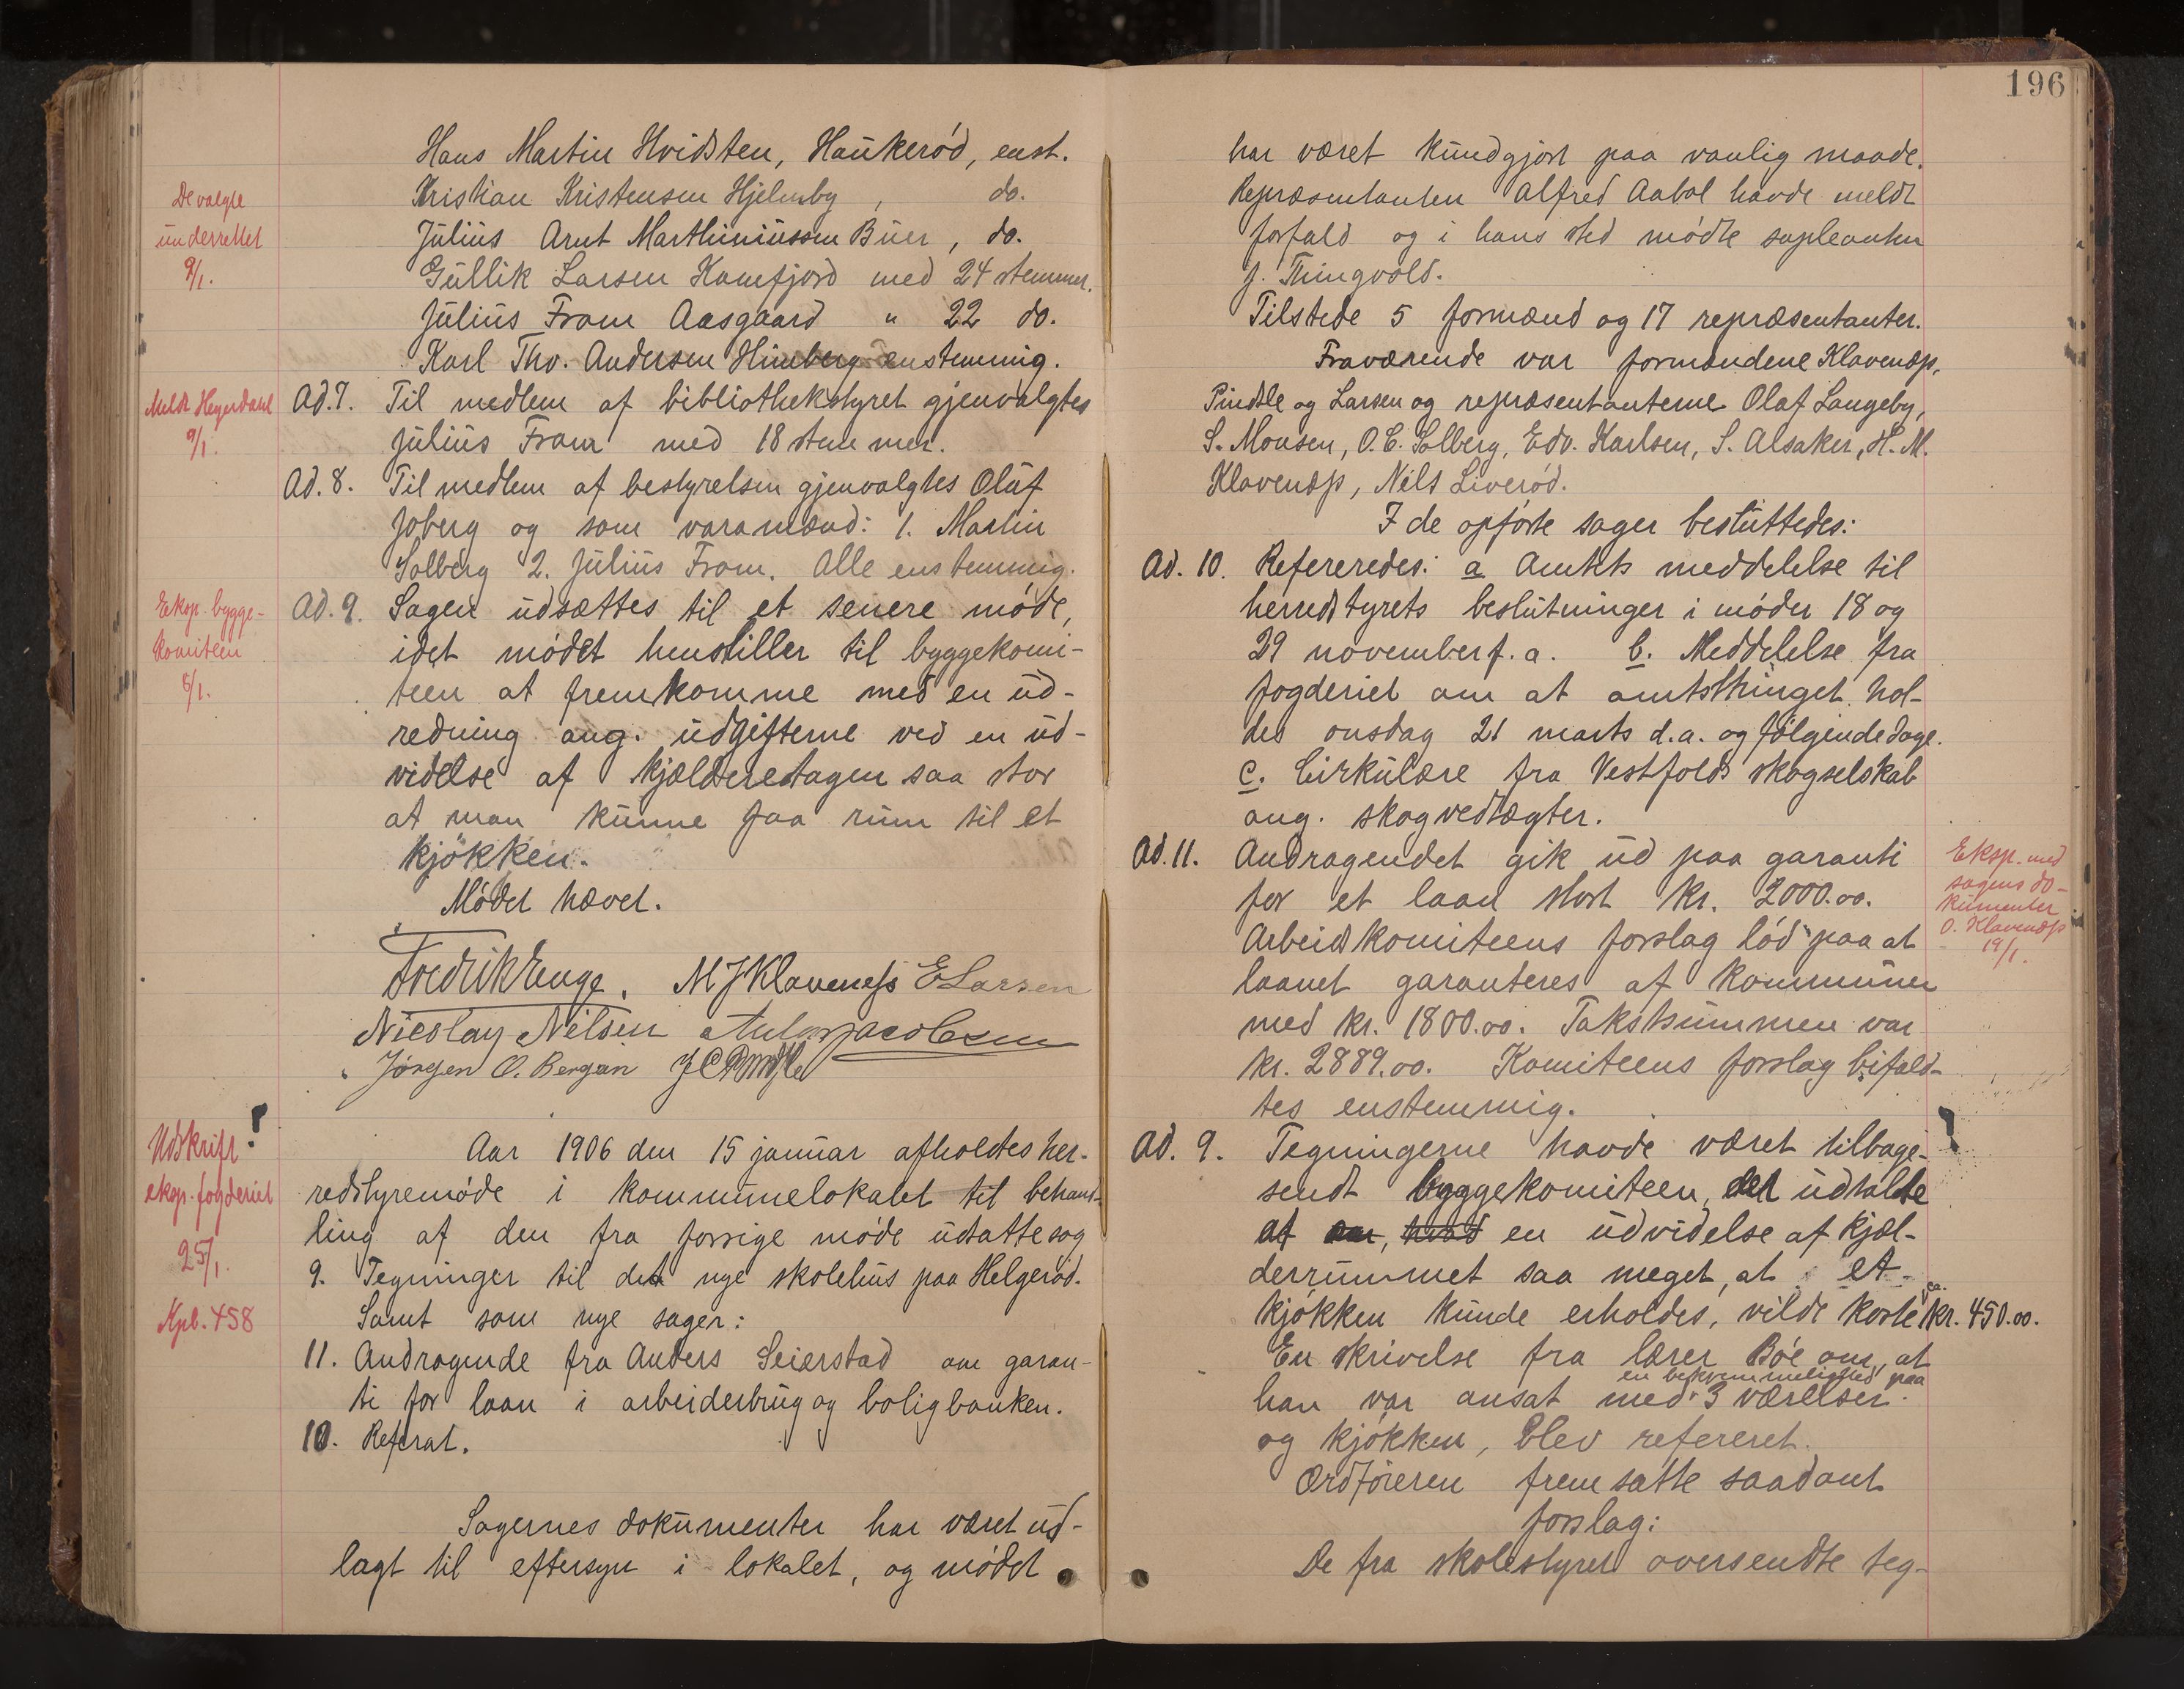 Hans Martin Hvidsten, Haukerød, enst.
Kristian Kristensen Hjelmby, do.
Julius Arnt Marthiniussen Buer, do.
Gullik Larsen Kamfjord med 24 stemmer.
Julius Fram Aasgaard " 22 do.
Karl Thv. Andersen Himberg enstemmig.
De valgte
underrettet
9/1.
Meldt Heyerdahl
9/1.
Ad. 7. Til medlem af bibliothekstyret gjenvalgtes
Julius Fram med 18 stemmer.
Ad. 8. Til medlem af bestyrelsen gjenvalgtes Oluf
Joberg og som varamænd: 1. Martin
Solberg 2. Julius Fram. Alle enstemmig.
Eksp. bygge-
komiteen
8/1.
Ad. 9. Sagen udsættes til et senere møde,
idet mødet henstiller til byggekomi-
teen at fremkomme med en ud-
redning ang. udgifterne ved en ud-
videlse af kjælderetagen saa stor
at man kunne faa rum til et
kjøkken.
Mødet hævet.
Fredrik Enge. M J Klaveness E Larsen
Nicolay Nilsen Anton Jacobsen
Jørgen O. Bergan J C Pindsle
Udskrift!
eksp. fogderiet
25/1.
Kpb. 458
Aar 1906 den 15 januar afholdtes her-
redstyremøde i kommunelokalet til behand-
ling af den fra forrige møde udsatte sag
9. Tegninger til det nye skolehus paa Helgerød.
Samt som nye sager:
11. Andragende fra Anders Seierstad om garan-
ti for laan i arbeiderbrug og boligbanken.
10. Referat.
Sagernes dokumenter har været ud-
lagt til eftersyn i lokalet, og mødet
196
har været kundgjort paa vanlig maade.
Repræsentanten Alfred Aabol havde meldt
forfald og i hans sted mødte supleanten
J. Thingvold.
Tilstede 5 formænd og 17 repræsentanter.
Fraværende var formændene Klavenæs,
Pindsle og Larsen og repræsentanterne Olaf Langeby,
S. Monsen, O. C. Solberg, Edv. Karlsen, S. Alsaker, H. M.
Klavenæs, Nils Liverød.
I de opførte sager besluttedes:
Ad. 10. Refereredes: a Amtets meddelelse til
herredstyrets beslutninger i møder 18 og
29 november f. a. b. Meddelelse fra
fogderiet om at amtsthinget hol-
des onsdag 21 marts d.a. og følgende dage.
c. Cirkulære fra Vestfolds skogselskab
ang. skogvedtægter.
Ad. 11. Andragendet gik ud paa garanti
for et laan stort kr. 2000.00.
Arbeidskomiteens forslag lød paa at
laanet garanteres af kommunen
med kr. 1800.00. Takstsummen var
kr. 2889.00. Komiteens forslag bifald-
tes enstemmig.
Eksp. med
sagens do-
kumenter
O. Klavenæs
19/1.
Ad. 9. Tegningerne havde været tilbage-
sendt byggekomiteen, det udtalte
at om, hvad en udvidelse af kjæl-
derrummet saa meget, at et
kjøkken kunde erholdes, vilde koste ca. kr. 450.00.
En skrivelse fra lærer Bøe om, at
han var ansat med en bekvemmelighed paa 3 værelser
og kjøkken, blev refereret.
Ordføreren fremsatte saadant
forslag:
De fra skolestyret oversendte teg-